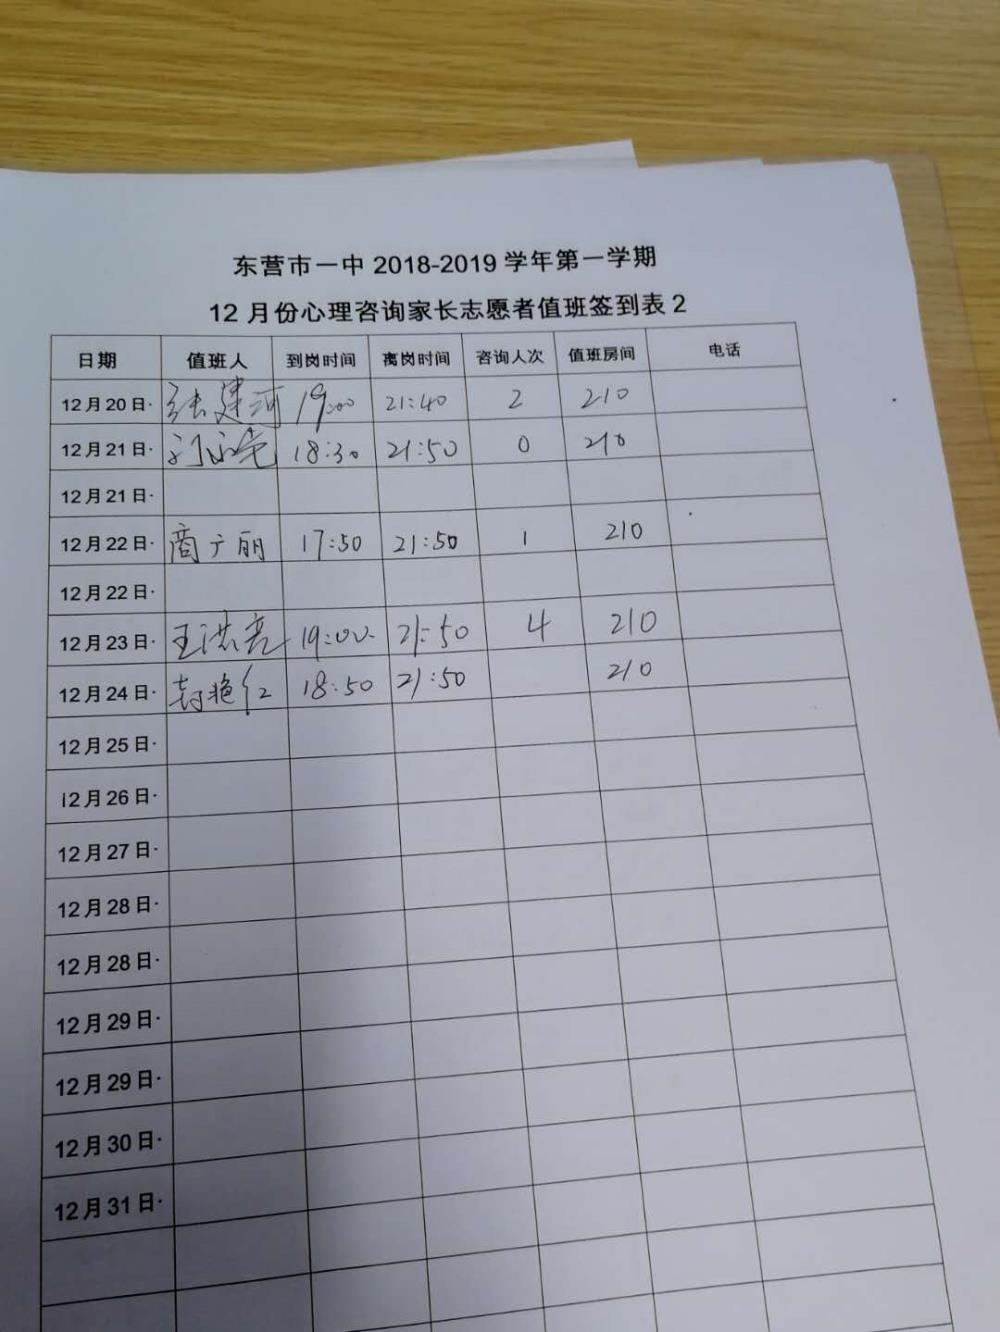 东营市一中 2018-2019 学年第一学期
12 月份心理咨询家长志愿者值班签到表 2
日期 值班人 到岗时间 离岗时间 咨询人次 值班房间 电话
12月20日· 张建河 19:00 21:40 2 210
12月21日· 18:30 21:50 0 210
12月21日·
12月22日· 商广丽 17:50 21:50 1 210
12月22日·
12月23日· 王洪亮 19:00 21:50 4 210
12月24日· 封艳红 18:50 21:50 210
12月25日·
12月26日·
12月27日·
12月28日·
12月28日·
12月29日·
12月29日·
12月30日·
12月31日·